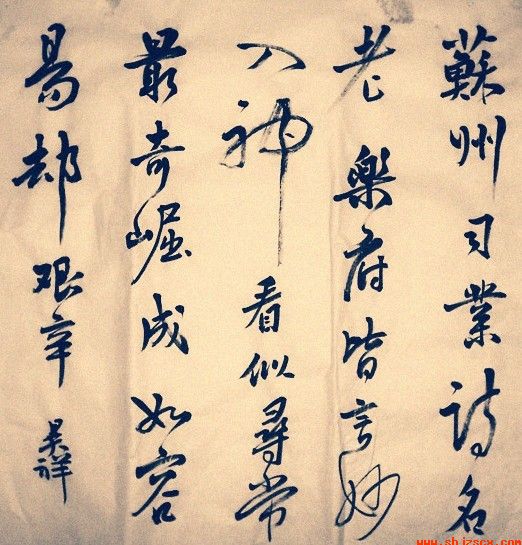 蘇州司業诗名
老樂府皆言妙
入神看似尋常
最奇崛成如容
易却艰辛